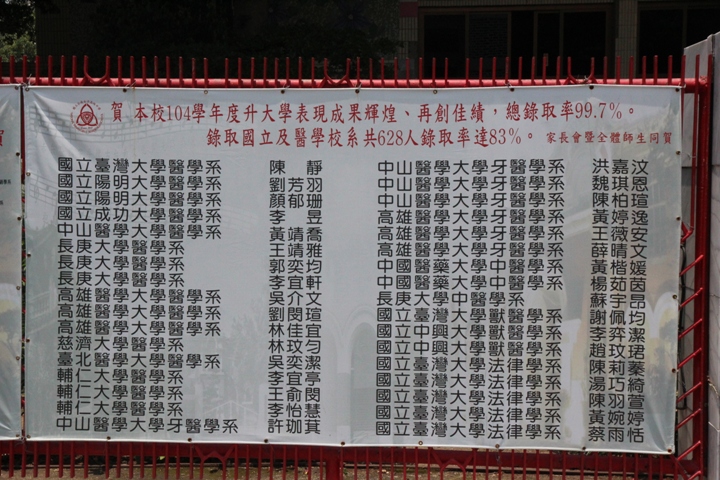 賀 本校104學年度升大學表現成果輝煌、再創佳績，總錄取率99.7%。
錄取國立及醫學校系共628人錄取率達83%。 家長會暨全體師生同賀
國立臺灣大學醫學系 陳 靜
國立陽明大學醫學系 劉芳羽
國立陽明大學醫學系 顏郁珊
國立成功大學醫學系 李 昱
中山醫學大學醫學系 黃靖喬
長庚大學醫學系 王靖雅
長庚大學醫學系 郭奕均
長庚大學醫學系 李宜軒
高雄醫學大學醫學系 吳介文
高雄醫學大學醫學系 劉閔瑄
高雄醫學大學醫學系 林佳宜
慈濟大學醫學系 林玟勻
臺北醫學大學醫學系 吳奕潔
輔仁大學醫學系 李宜亭
輔仁大學醫學系 王俞閔
輔仁大學醫學系 李怡慧
中山醫學大學牙醫學系 許珈萁
中山醫學大學牙醫學系 洪嘉汶
中山醫學大學牙醫學系 魏琪恩
中山醫學大學牙醫學系 陳柏瑄
高雄醫學大學牙醫學系 黃婷逸
高雄醫學大學牙醫學系 王薇安
高雄醫學大學牙醫學系 薛晴文
中國醫藥大學中醫學系 黃楷媛
中國醫藥大學中醫學系 楊茹茵
長庚大學中醫學系 蘇宇昂
國立臺灣大學獸醫學系 謝佩均
國立中興大學獸醫學系 李弈潔
國立中興大學獸醫學系 趙玟珺
國立臺灣大學法律學系 陳莉蓁
國立臺灣大學法律學系 湯巧綺
國立臺灣大學法律學系 陳羽萱
國立臺灣大學法律學系 黃婉婷
國立臺灣大學法律學系 蔡雨恬